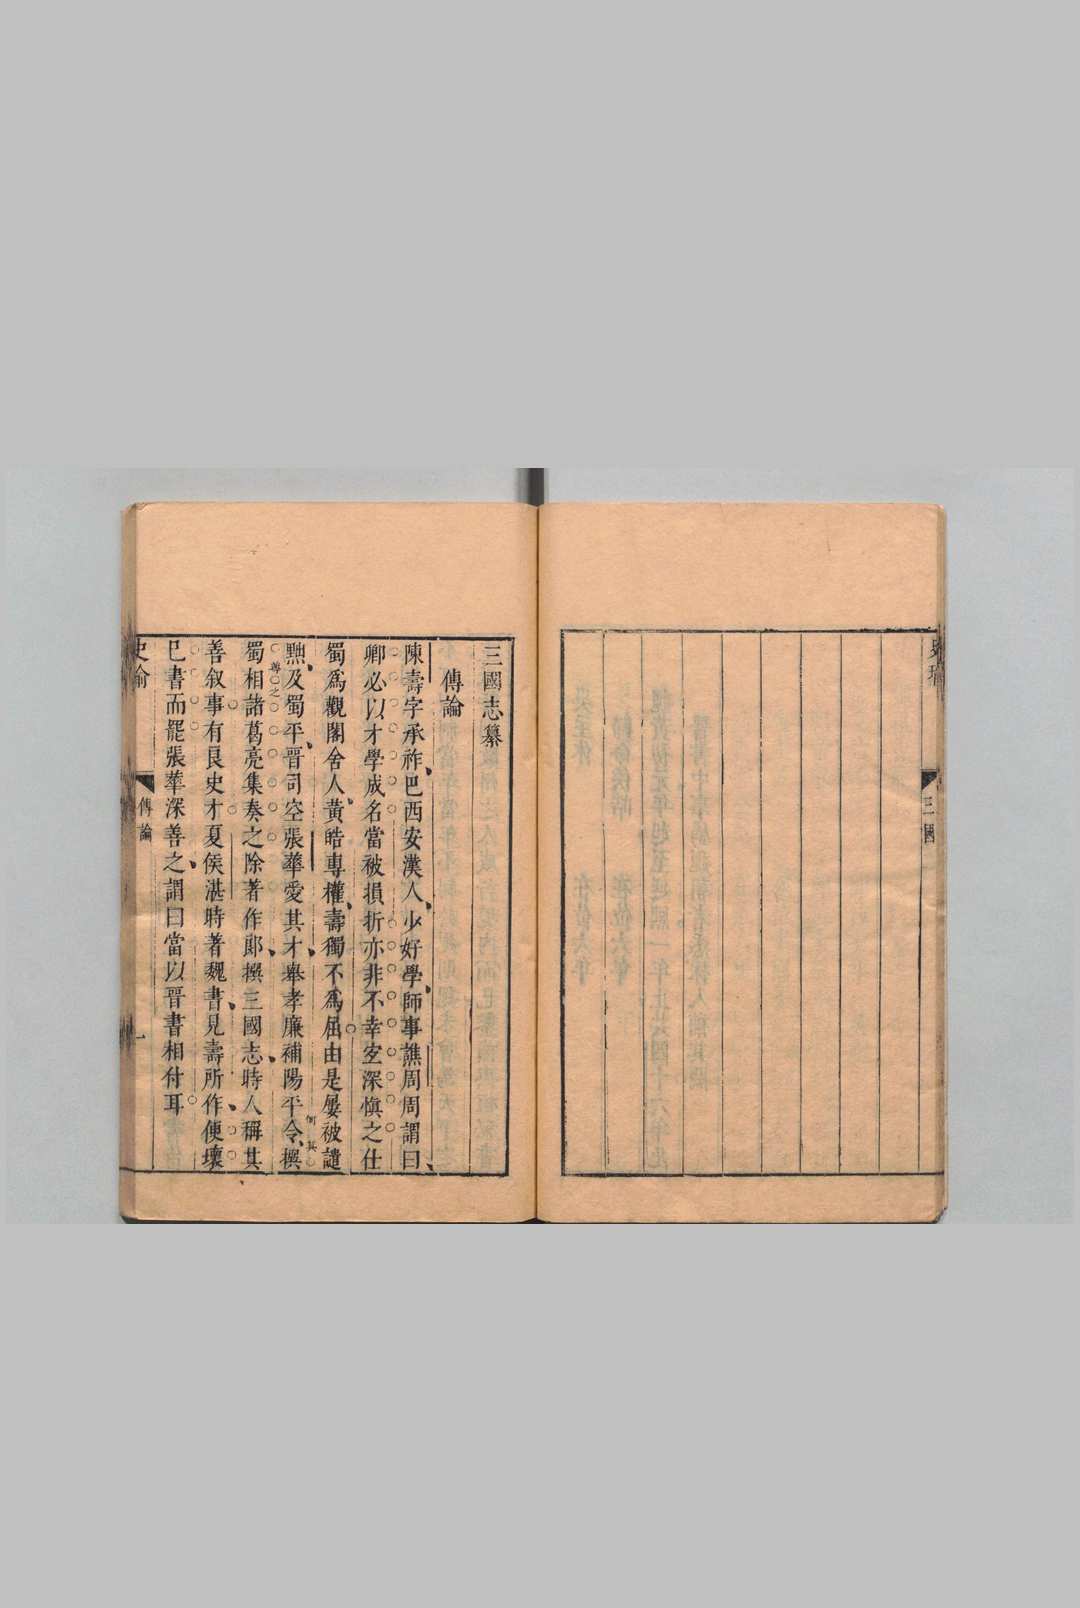 三國
三國志纂
傳論
陳壽字承祚巴西安漢人少好學師事譙周周謂曰
卿必以才學成名當被損折亦非不幸宜深愼之仕
蜀爲觀閣舍人黃皓專權壽獨不爲屈由是屢被譴
黜及蜀平晉司空張華愛其才舉孝廉補陽平令撰
蜀相諸葛亮集奏之除著作郞撰三國志時人稱其
善叙事有良史才夏侯湛時著魏書見壽所作便壞
已書而罷張華深善之謂曰當以晉書相付耳
傳論
一